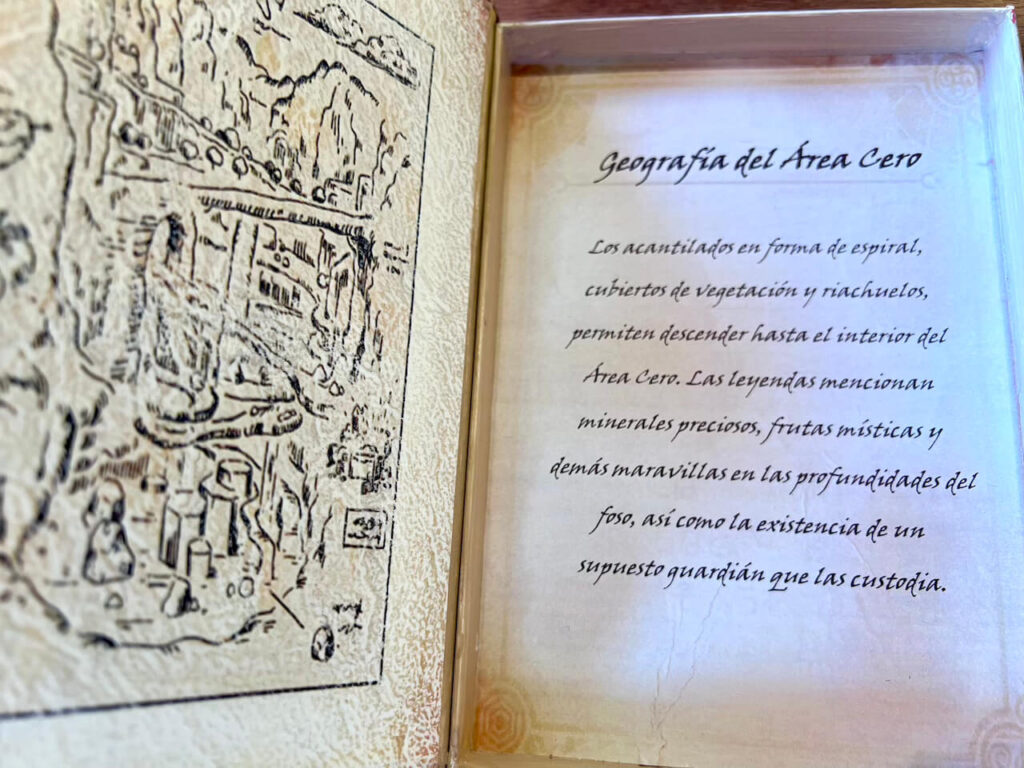 Geografía del Área Cero
Los acantilados en forma de espiral,
cubiertos de vegetación y riachuelos,
permiten descender hasta el interior del
Área Cero. Las leyendas mencionan
minerales preciosos, frutas místicas y
demás maravillas en las profundidades del
foso, así como la existencia de un
supuesto guardián que las custodia.